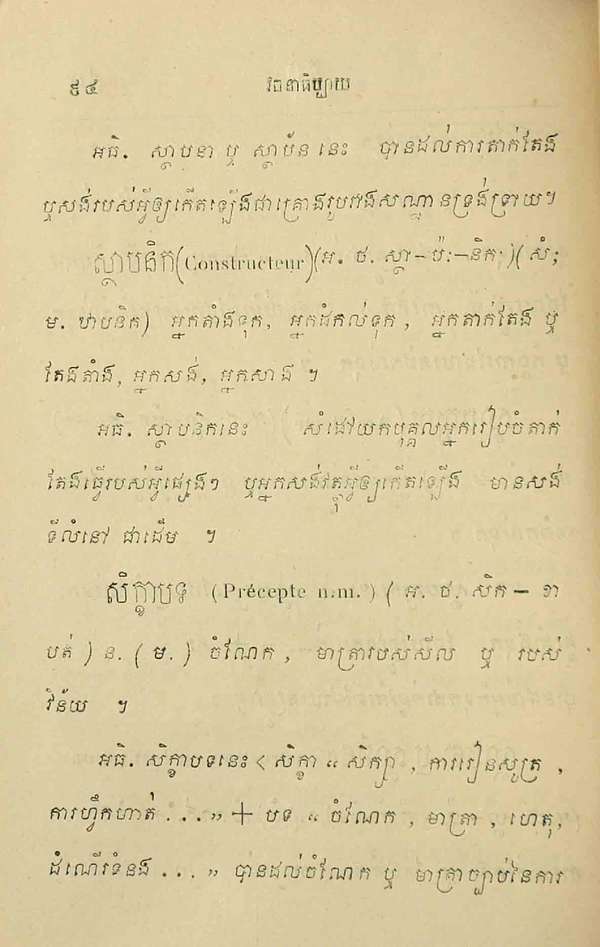 ៩៤ វចនាធិប្បាយ
អធិ. ស្ថាបនា ឬ ស្ថាប័ន នេះ បានដល់ការតាក់តែង
ឬសង់របស់អ្វីឲ្យកើតឡើងជាគ្រោងរូបរាងសណ្ឋានទ្រង់ទ្រាយ។
ស្ថាបនិក(Constructeur)(អ. ថ. ស្ថា-ប៉ៈ-និក)(សំ;
ម. ឋាបនិក) អ្នកតាំងទុក, អ្នកដំកល់ទុក, អ្នកតាក់តែង ឬ
តែងតាំង, អ្នកសង់, អ្នកសាង ។
អធិ. ស្ថាបនិកនេះ សំដៅយកបុគ្គលអ្នករៀបចំតាក់
តែងធ្វើរបស់អ្វីផ្សេងៗ ឬអ្នកសង់វត្ថុអ្វីឲ្យកើតឡើង មានសង់
ទីលំនៅ ជាដើម ។
សិក្ខាបទ (Précepte n.m.) ( អ. ថ. សិក - ខា
បត់ ) ន. ( ម. ) ចំណែក, មាត្រារបស់សីល ឬ របស់
វិន័យ ។
អធិ. សិក្ខាបទនេះ < សិក្ខា « សិក្សា, ការរៀនសូត្រ,
ការហ្វឹកហាត់ ...» + បទ « ចំណែក, មាត្រា, ហេតុ,
ដំណើរទំនង ...» បានដល់ចំណែក ឬ មាត្រាច្បាប់នៃការ